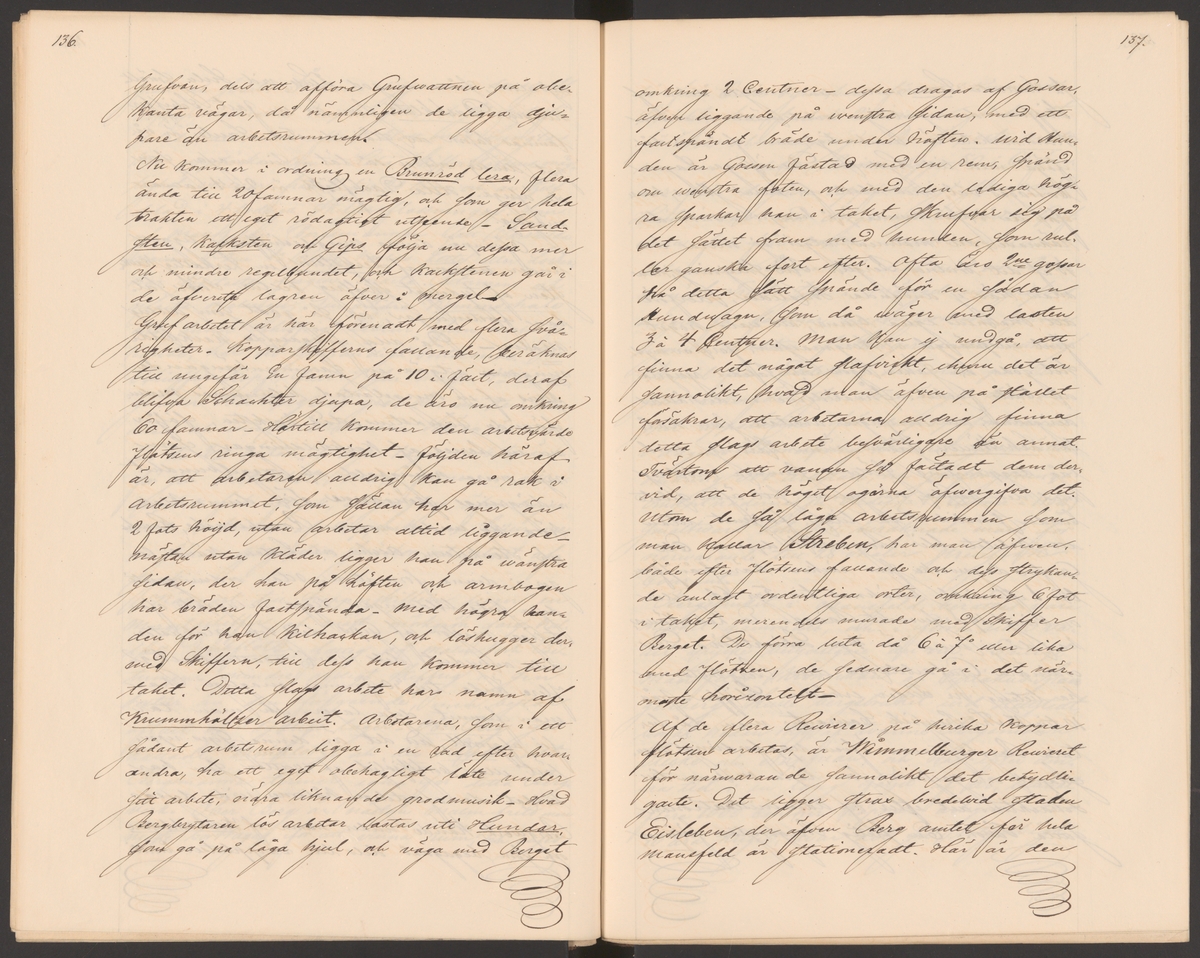 136.
Grufvan, dels att afföra Grufwattnen på obe-
kanta vägar, då nämnligen de ligga dju-
pare än arbetsrummen.
Nu kommer i ordning en Brunröd lera, flera
ända till 20 famnar mägtig, och som ger hela
trakten ett eget rödagtigt utseende - Sand-
sten, Kalksten och Gips följa nu dessa mer
och mindre regelbundet, och Kalkstenen går i
de öfversta lagren öfver i mergel -
Grufarbetet är här förenadt med flera svå-
righeter - Kopparskifferns fallande, beräknas
till ungefär En famn på 10 i fält, deraf
blifva Schachter djupa, de äro nu omkring
60 famnar - Härtill kommer den arbetsvärde
Flötsens ringa mägtighet - följden häraf
är, att arbetaren alldrig kan gå rak i
Arbetsrummet, som sällan har mer än
2 fots höijd, utan arbetar altid liggande -
nästan utan kläder ligger han på wänstra
sidan, der han på höften och armbogen
har bräden fastspända - med högra han-
den för han Kilhackan, och löshugger der-
med Skiffern, till dess han kommer till
taket. Detta slags arbete har namn af
Krummhöltzer arbeit. Arbetarena, som i ett
sådant arbetsrum ligga i en rad efter hvar-
andra, ha ett eget obehagligt läte under
sitt arbete, nära liknande grodmusik - Hvad
Bergbrytaren lös arbetar lastas uti Hundar,
som gå på låga hjul, och väga med Berget
137.
omkring 2 Centner - dessa dragas af Gossar,
äfven liggande på wenstra sidan, med ett
fastspändt bräde under höften. Wid Hun-
den är Gossen fästad med en rem, spänd
om wenstra foten, och med den lediga hög-
ra sparkar han i taket, skrufvar sig på
det sättet fram med hunden, som rul-
lar ganska fort efter. Ofta äro 2ne gossar
på detta sätt spände för en sådan
Hundvagn, som då wäger med lasten
3 à 4 Centner. Man kan ej undgå, att
finna det något slafviskt, ehuru det är
sannolikt, hvad man äfven på stället
försäkrar, att arbetarna alldrig finna
detta slags arbete besvärligare än annat.
Tvärtom att vanan så fästadt dem der-
vid, att de högst ogärna öfwergifva det.
Utom de så låga arbetsrummen som
man kallar Streben, har man äfwen,
både efter Flötsens fallande och dess strykan-
de anlagt ordentliga orter, omkring 6 fot
i taket, merendels murade med Skiffer
Berget. De förra luta då 6 à 7 eller lika
med Flötsen, de sednare gå i det när-
maste horizontelt -
Af de flera Revierer på hvilka Koppar
flötsen arbetas, är Wimmelburger Revieret
för närwarande sannolikt det betydli-
gaste. Det ligger strax bredewid staden
Eisleben, der äfven Berg amtet för hela
Mansfeld är stationeradt. Här är den